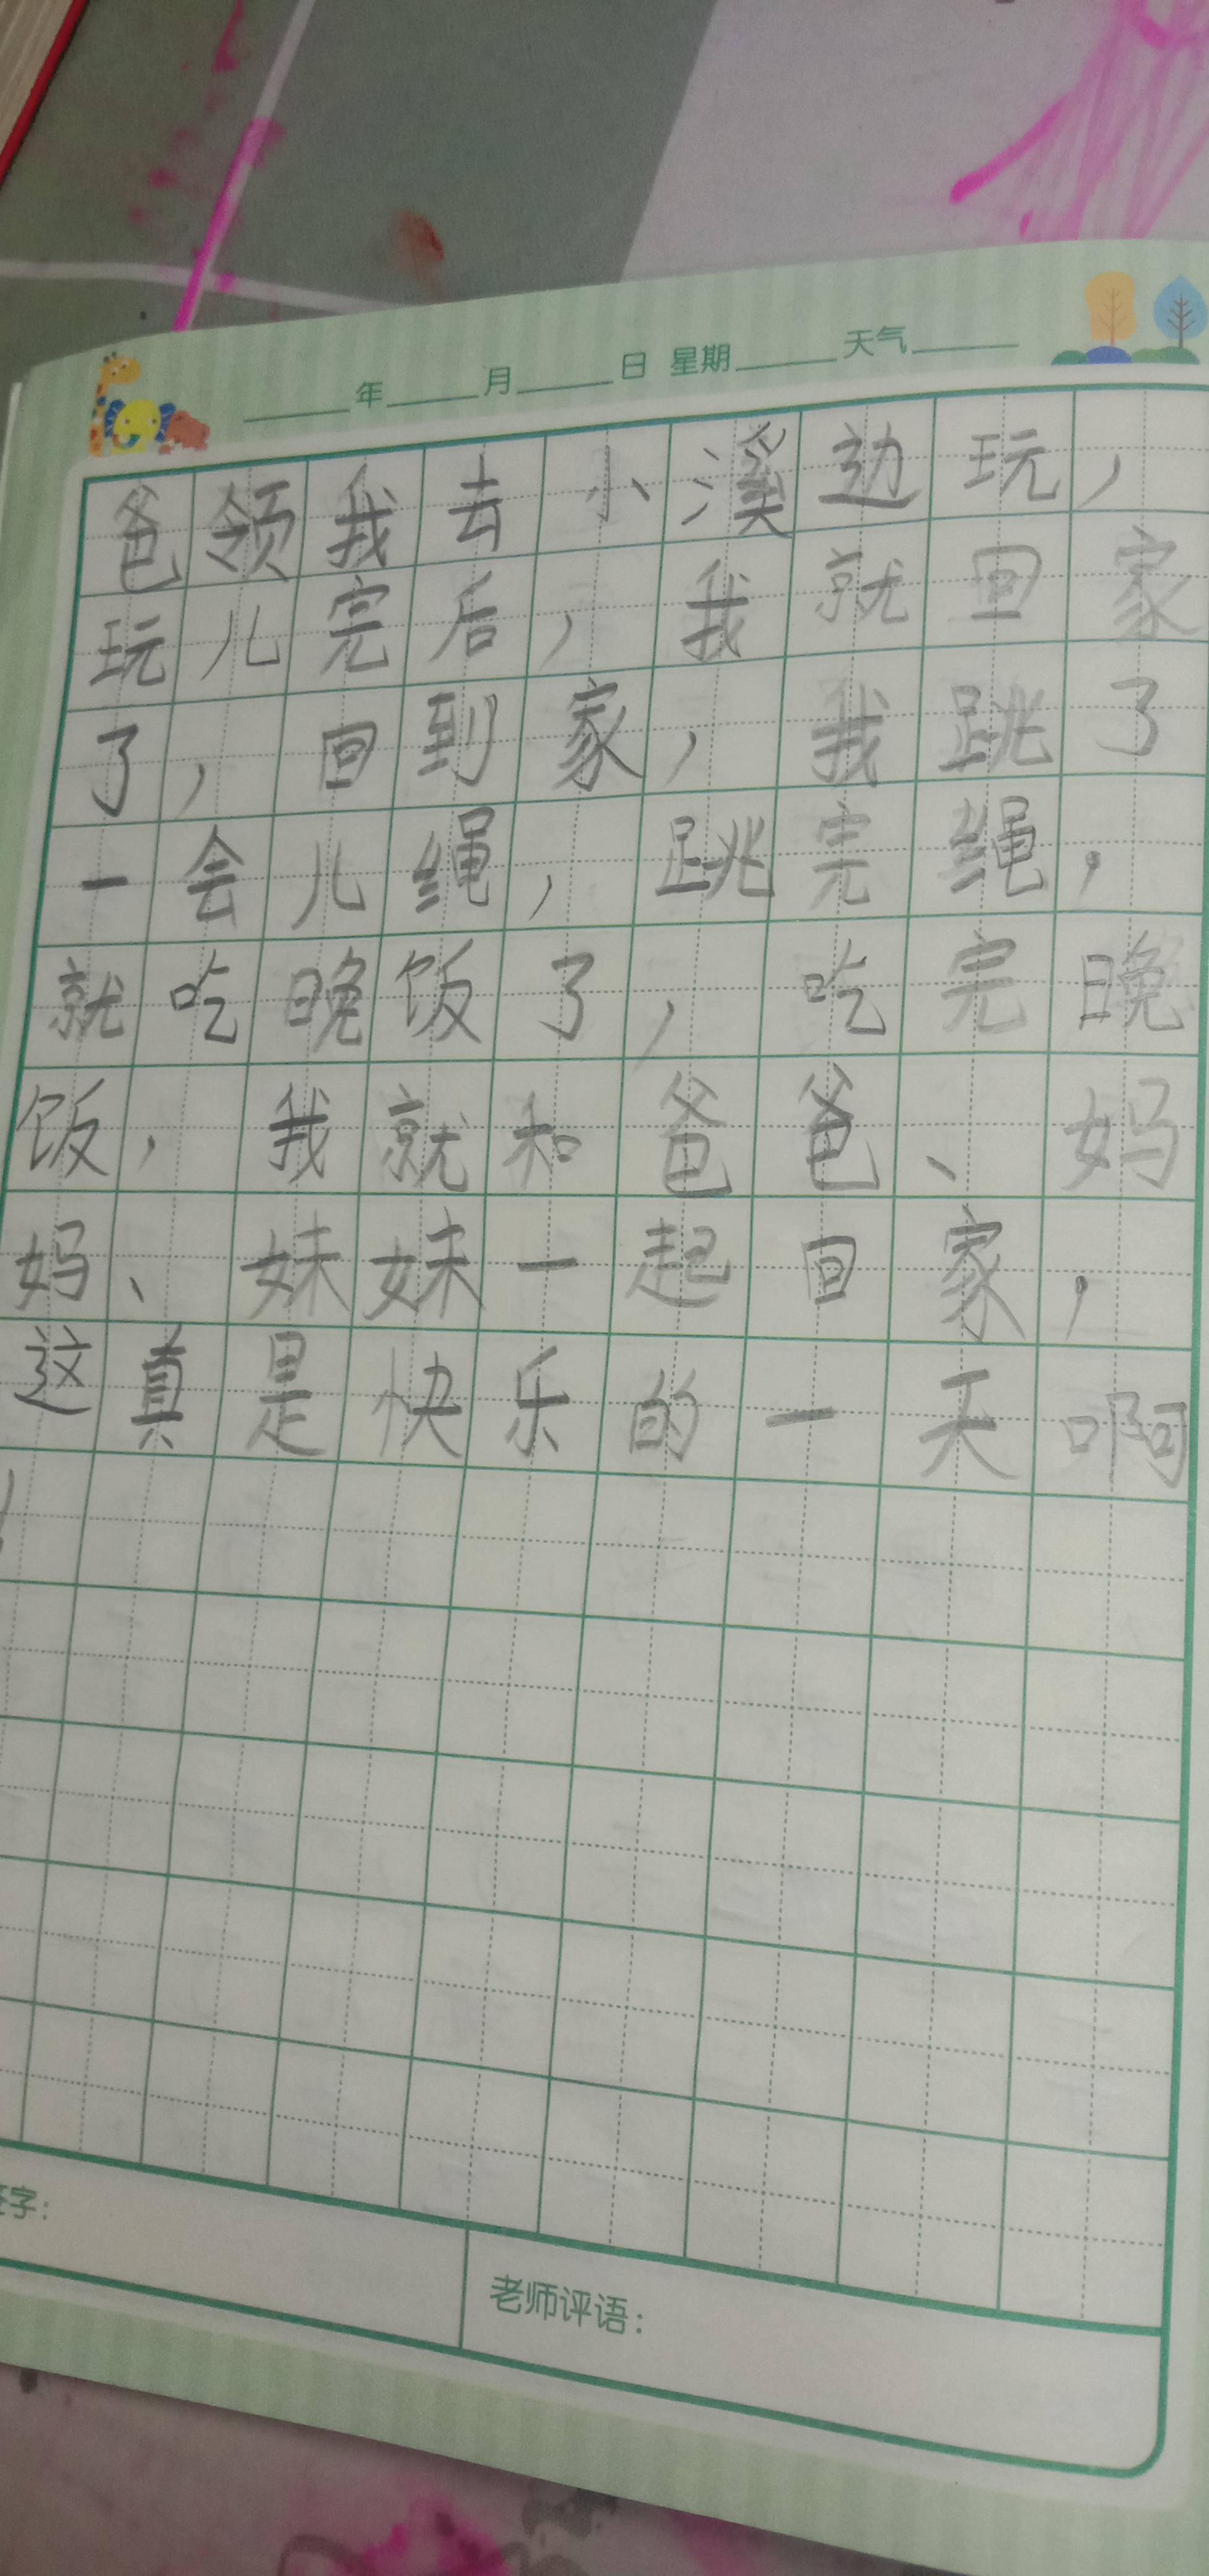 年 月 日 星期 天气
爸领我去小溪边玩，
玩儿完后，我就回家
了，回到家，我跳了
一会儿绳，跳完绳，
就吃晚饭了，吃完晚
饭，我就和爸爸、妈
妈、妹妹一起回家，
这真是快乐的一天啊
！
字：
老师评语：